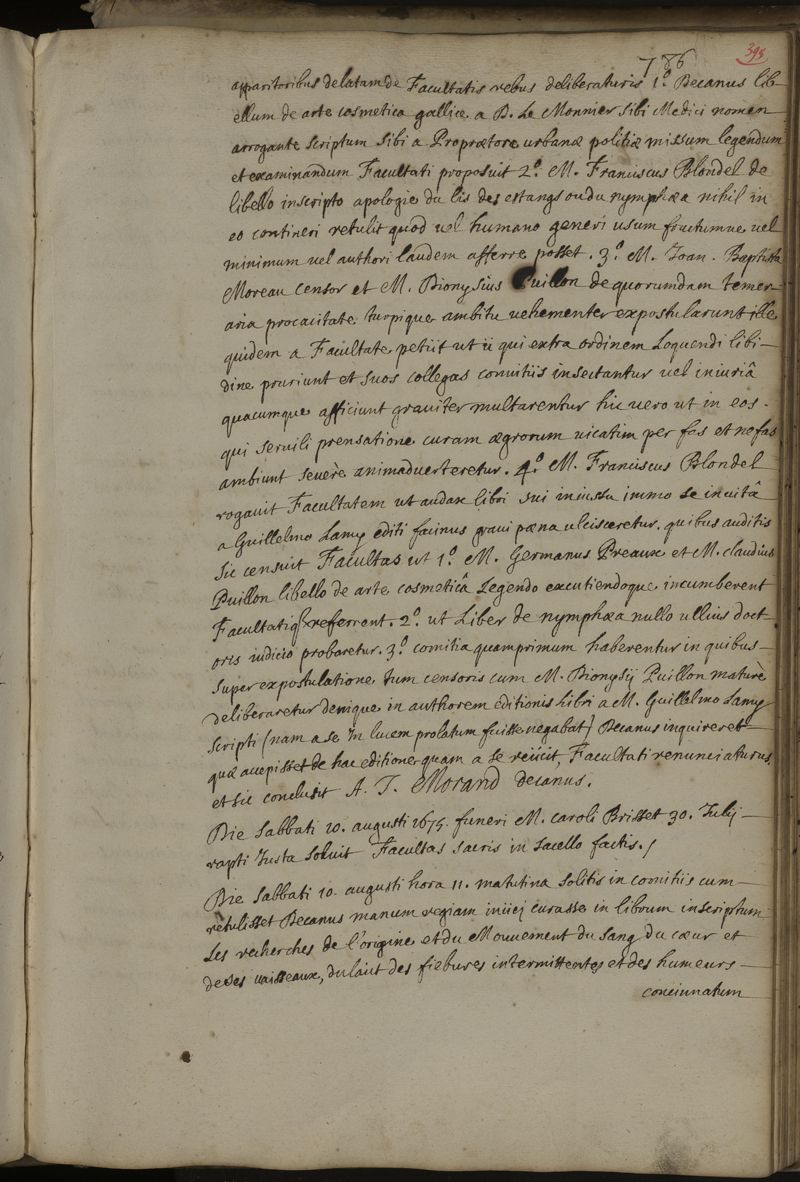 786
395
apparitoribus delatam de Facultatis rebus deliberaturis 1.º Decanus lib-
ellum de arte cosmetica gallice a D. Le Monnier sibi Medici nomen
arrogante scriptum sibi a Propraetore urbanae politiae missum legendum
et examinandum Facultati proposuit 2.º M. Franciscus Blondel de
libello inscripto apologie du lis des estangs ou du nymphaea nihil in
eo contineri retulit quod vel humano generi usum fructumve vel
minimum vel authori laudem afferre posset. 3.º M. Joan. Baptista
Moreau censor et M. Dionysius Puillon de quorumdam temer-
aria procacitate turpique ambitu vehementer expostularunt ille
quidem a Facultate petiit ut ii qui extra ordinem Loquendi libi-
dine pruriunt et suos collegas convitiis insectantur vel iniuriâ
quacumque afficiunt graviter multarentur hic vero ut in eos-
qui servili prensatione curam aegrorum vicatim per fas et nefas
ambiunt severè animadverteretur. 4.º M. Franciscus Blondel
rogavit Facultatem ut audax libri sui iniussu immo se invitâ
a Guillelmo Lamy editi facinus gravi paena ulcisceretur. quibus auditis
sic censuit Facultas ut 1.º M. Germanus Preaux et M. claudius
Puillon libello de arte cosmeticâ Legendo excutiendoque incumberent
Facultatiq referrent. 2.º ut Liber de nymphaea nullo ullius doct-
oris iudicio probaretur. 3.º comitia quamprimum haberentur in quibus-
super expostulatione tum censoris cum M. Dionysij Puillon maturè
deliberaretur denique in authorem editionis libri a M. Guillelmo Lamy
scripti (nam a se In lucem prolatum fuisse negabat) Decanus inquireret
quae accepisset de hac editione quam a se reiicit Facultati renunciaturus
et sic conclusit A. J. Morand decanus.
Die Sabbati 10. augusti 1675. funeri M. caroli Brisset 30. Julij
rapti Justa soluit Facultas sacris in sacello factis./
Die Sabbati 10. augusti hora 11. matutina solitis in comitiis cum-
retulisset Decanus manum regiam iniici curasse in librum inscriptum
Les recherches de l'origine et du Mouvement du sang du coeur et
de ses vaisseaux, du laict des fiebvres intermittentes et des humeurs-
concinnatum